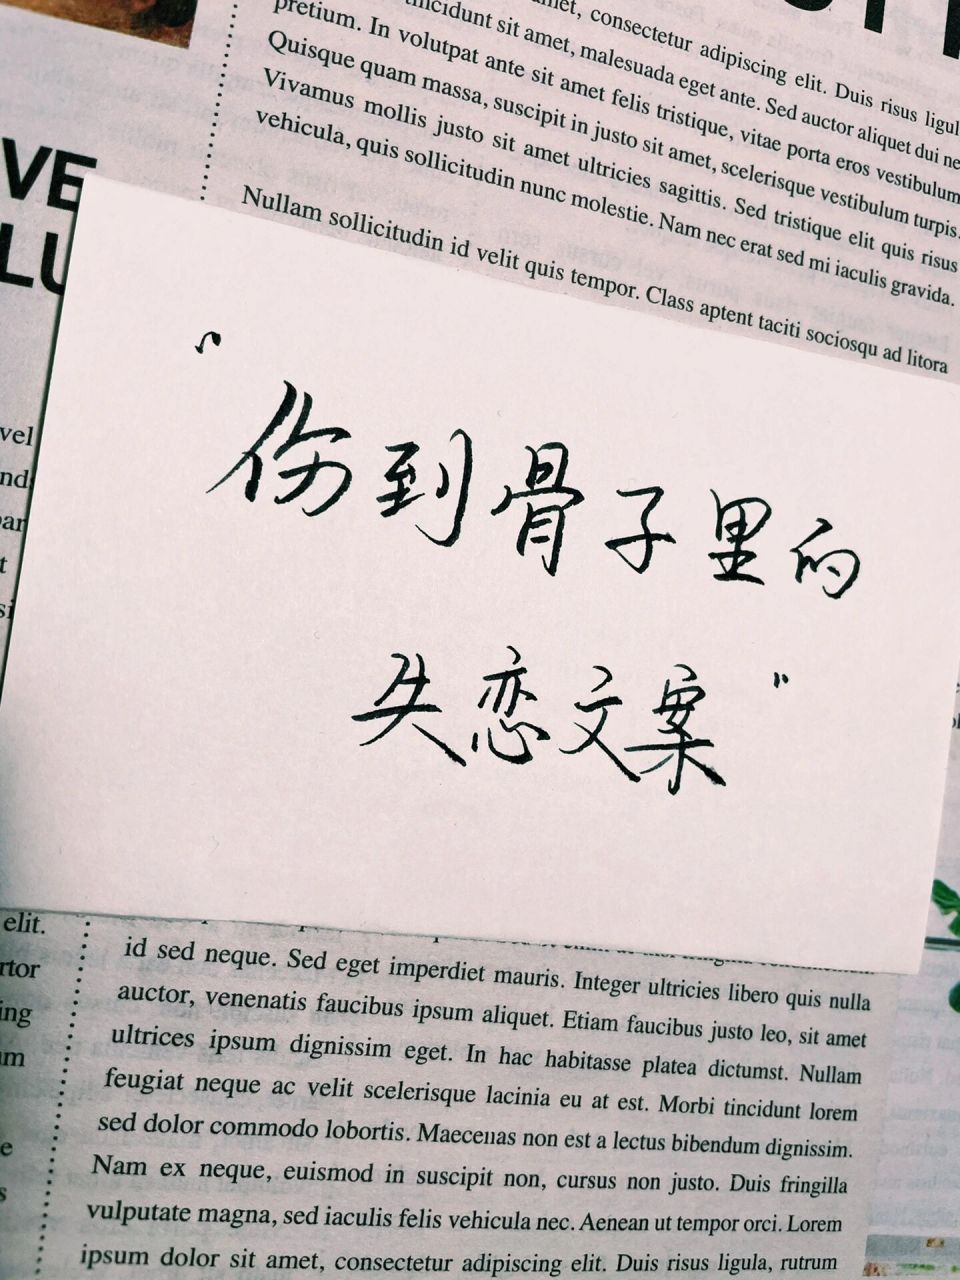 met, consectetur adipiscing elit. Duis risus ligul
tincidunt sit amet, malesuada eget ante. Sed auctor aliquet dui ne
pretium. In volutpat ante sit amet felis tristique, vitae porta eros vestibulum
Quisque quam massa, suscipit in justo sit amet, scelerisque vestibulum turpis.
Vivamus mollis justo sit amet ultricies sagittis. Sed tristique elit quis risus
vehicula, quis sollicitudin nunc molestie. Nam nec erat sed mi iaculis gravida.
Nullam sollicitudin id velit quis tempor. Class aptent taciti sociosqu ad litora
VE
LU
vel
nd
par
t
si
“伤到骨子里的
失恋文案”
elit.
rtor
ing
um
e
s
id sed neque. Sed eget imperdiet mauris. Integer ultricies libero quis nulla
auctor, venenatis faucibus ipsum aliquet. Etiam faucibus justo leo, sit amet
ultrices ipsum dignissim eget. In hac habitasse platea dictumst. Nullam
feugiat neque ac velit scelerisque lacinia eu at est. Morbi tincidunt lorem
sed dolor commodo lobortis. Maecenas non est a lectus bibendum dignissim.
Nam ex neque, euismod in suscipit non, cursus non justo. Duis fringilla
vulputate magna, sed iaculis felis vehicula nec. Aenean ut tempor orci. Lorem
ipsum dolor sit amet, consectetur adipiscing elit. Duis risus ligula, rutrum